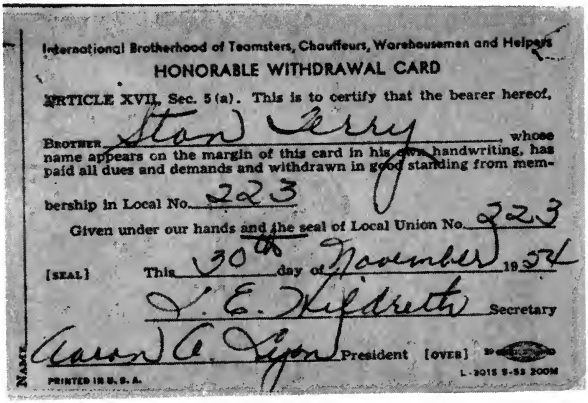 International Brotherhood of Teamsters, Chauffeurs, Warehousemen and Helpers
HONORABLE WITHDRAWAL CARD
ARTICLE XVII, Sec. 5(a). This is to certify that the bearer hereof,
BROTHER Stan Terry, whose
name appears on the margin of this card in his own handwriting, has
paid all dues and demands and withdrawn in good standing from mem-
bership in Local No. 223
Given under our hands and the seal of Local Union No. 223
[SEAL] This 30th day of November 1954
J. E. Hildreth Secretary
Aaron A. Lyon President [OVER]
NAME
PRINTED IN U. S. A.
L-3015 5-53 200M